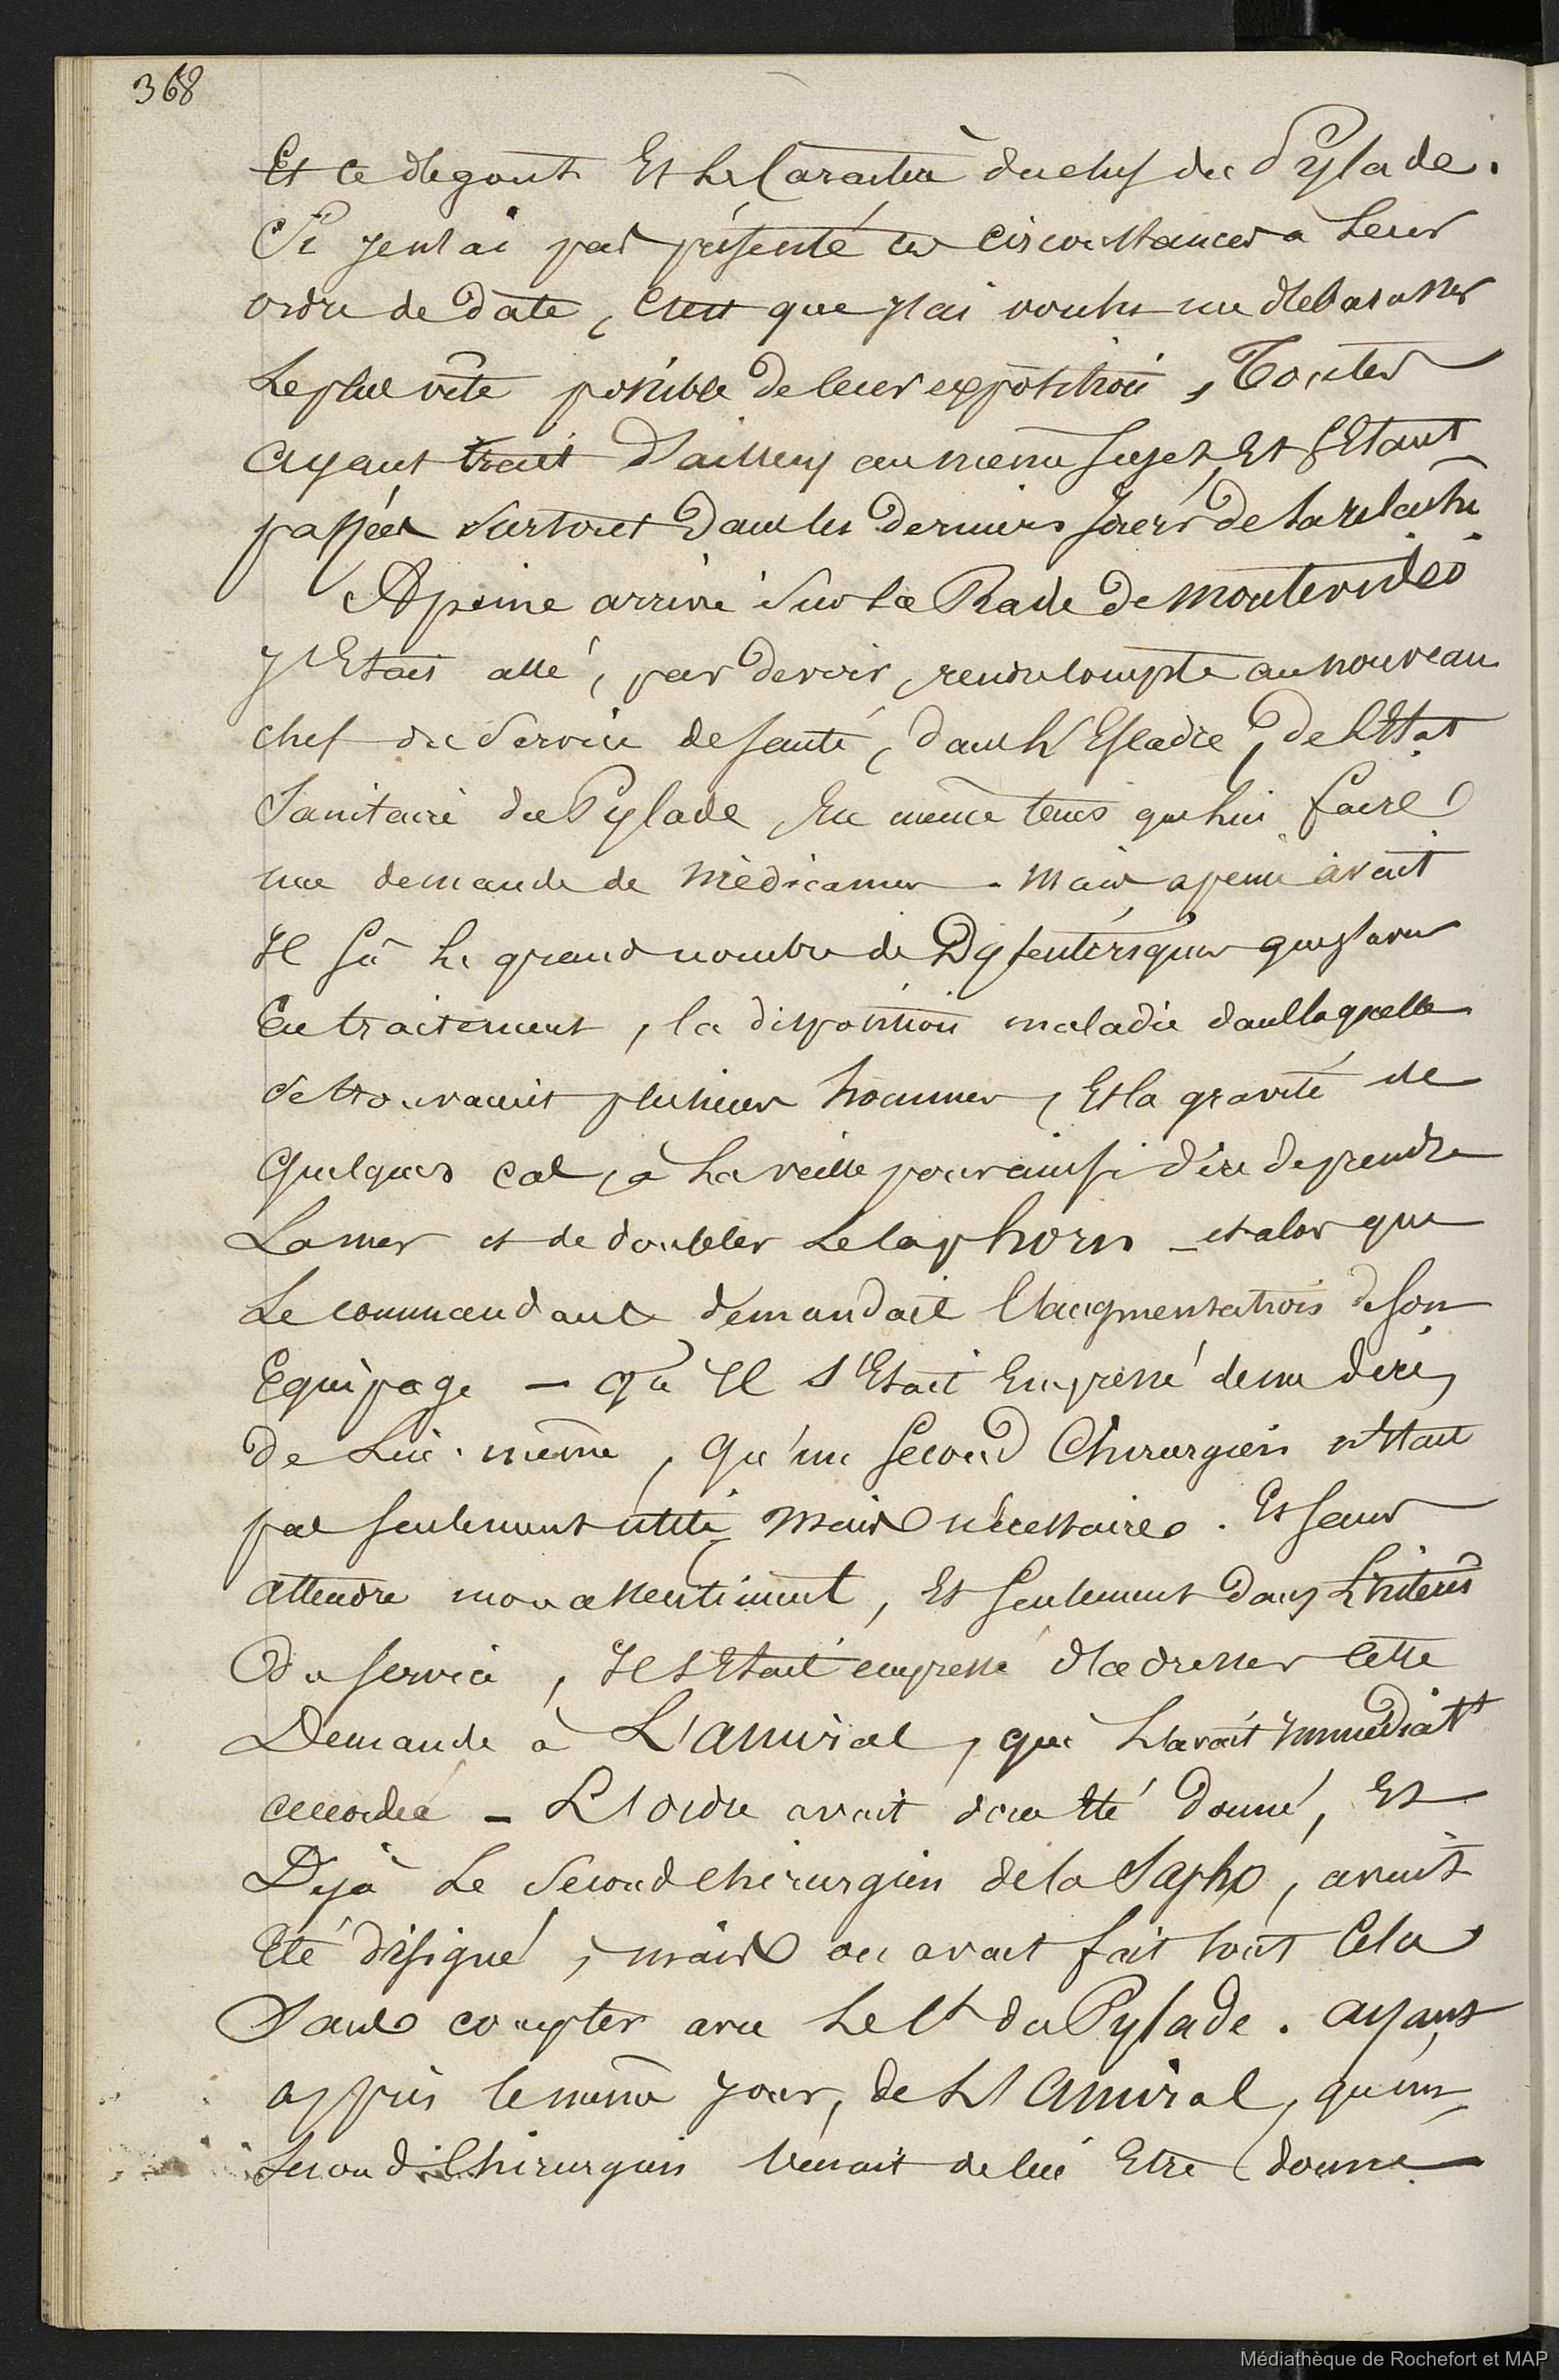 368
Et ce degout Et Le Caractere du chef du Pylade.
Si je n'ai pas présenté ces circonstances a Leur
ordre de Date, c'est que j'ai voulu me debarasser
Le plus vite possible de leur exposition, Toutes
ayant trait D'ailleurs au meme sujet, Et s'Etant
passées surtout Dans les Derniers jours de la relache.
A peine arrivé sur la Rade de montevideo
J'Etais allé, par devoir, rendre compte au nouveau
chef du service de santé, dans L'Escadre, de L'Etat
sanitaire du Pylade En meme tems que lui faire
une demande de médicamens. mais a peine avait
Il sû le grand nombre de Dysentériques que j'avais
En traitement, la disposition maladie dans laquelle
se trouvaient plusieurs hommes, Et la gravité de
quelques cas, à La veille pour ainsi dire de prendre
La mer et de doubler Le Cap horn - et alors que
Le commandant demandait l'augmentation de son
Equipage — qu'Il s'Etait Empressé de me dire,
de Lui-même, qu'un second Chirurgien n'Etait
pas seulement utile, mais nécessaire. Et sans
attendre mon assentiment, Et seulement dans L'interet
Du service, Il s'Etait empressé d'adresser cette
Demande à L'amiral, qui L'avait Immédiatt
accordée - L'ordre avait donc Eté donné, Et
Déjà Le second chirurgien de la Sapho, avait
Eté désigné, mais on avait fait tout Cela
Sans compter avec Le Ct du Pylade. ayant
appris le meme jour, de L'amiral, qu'un
second Chirurgien venait de lui Etre donné
Médiathèque de Rochefort et MAP